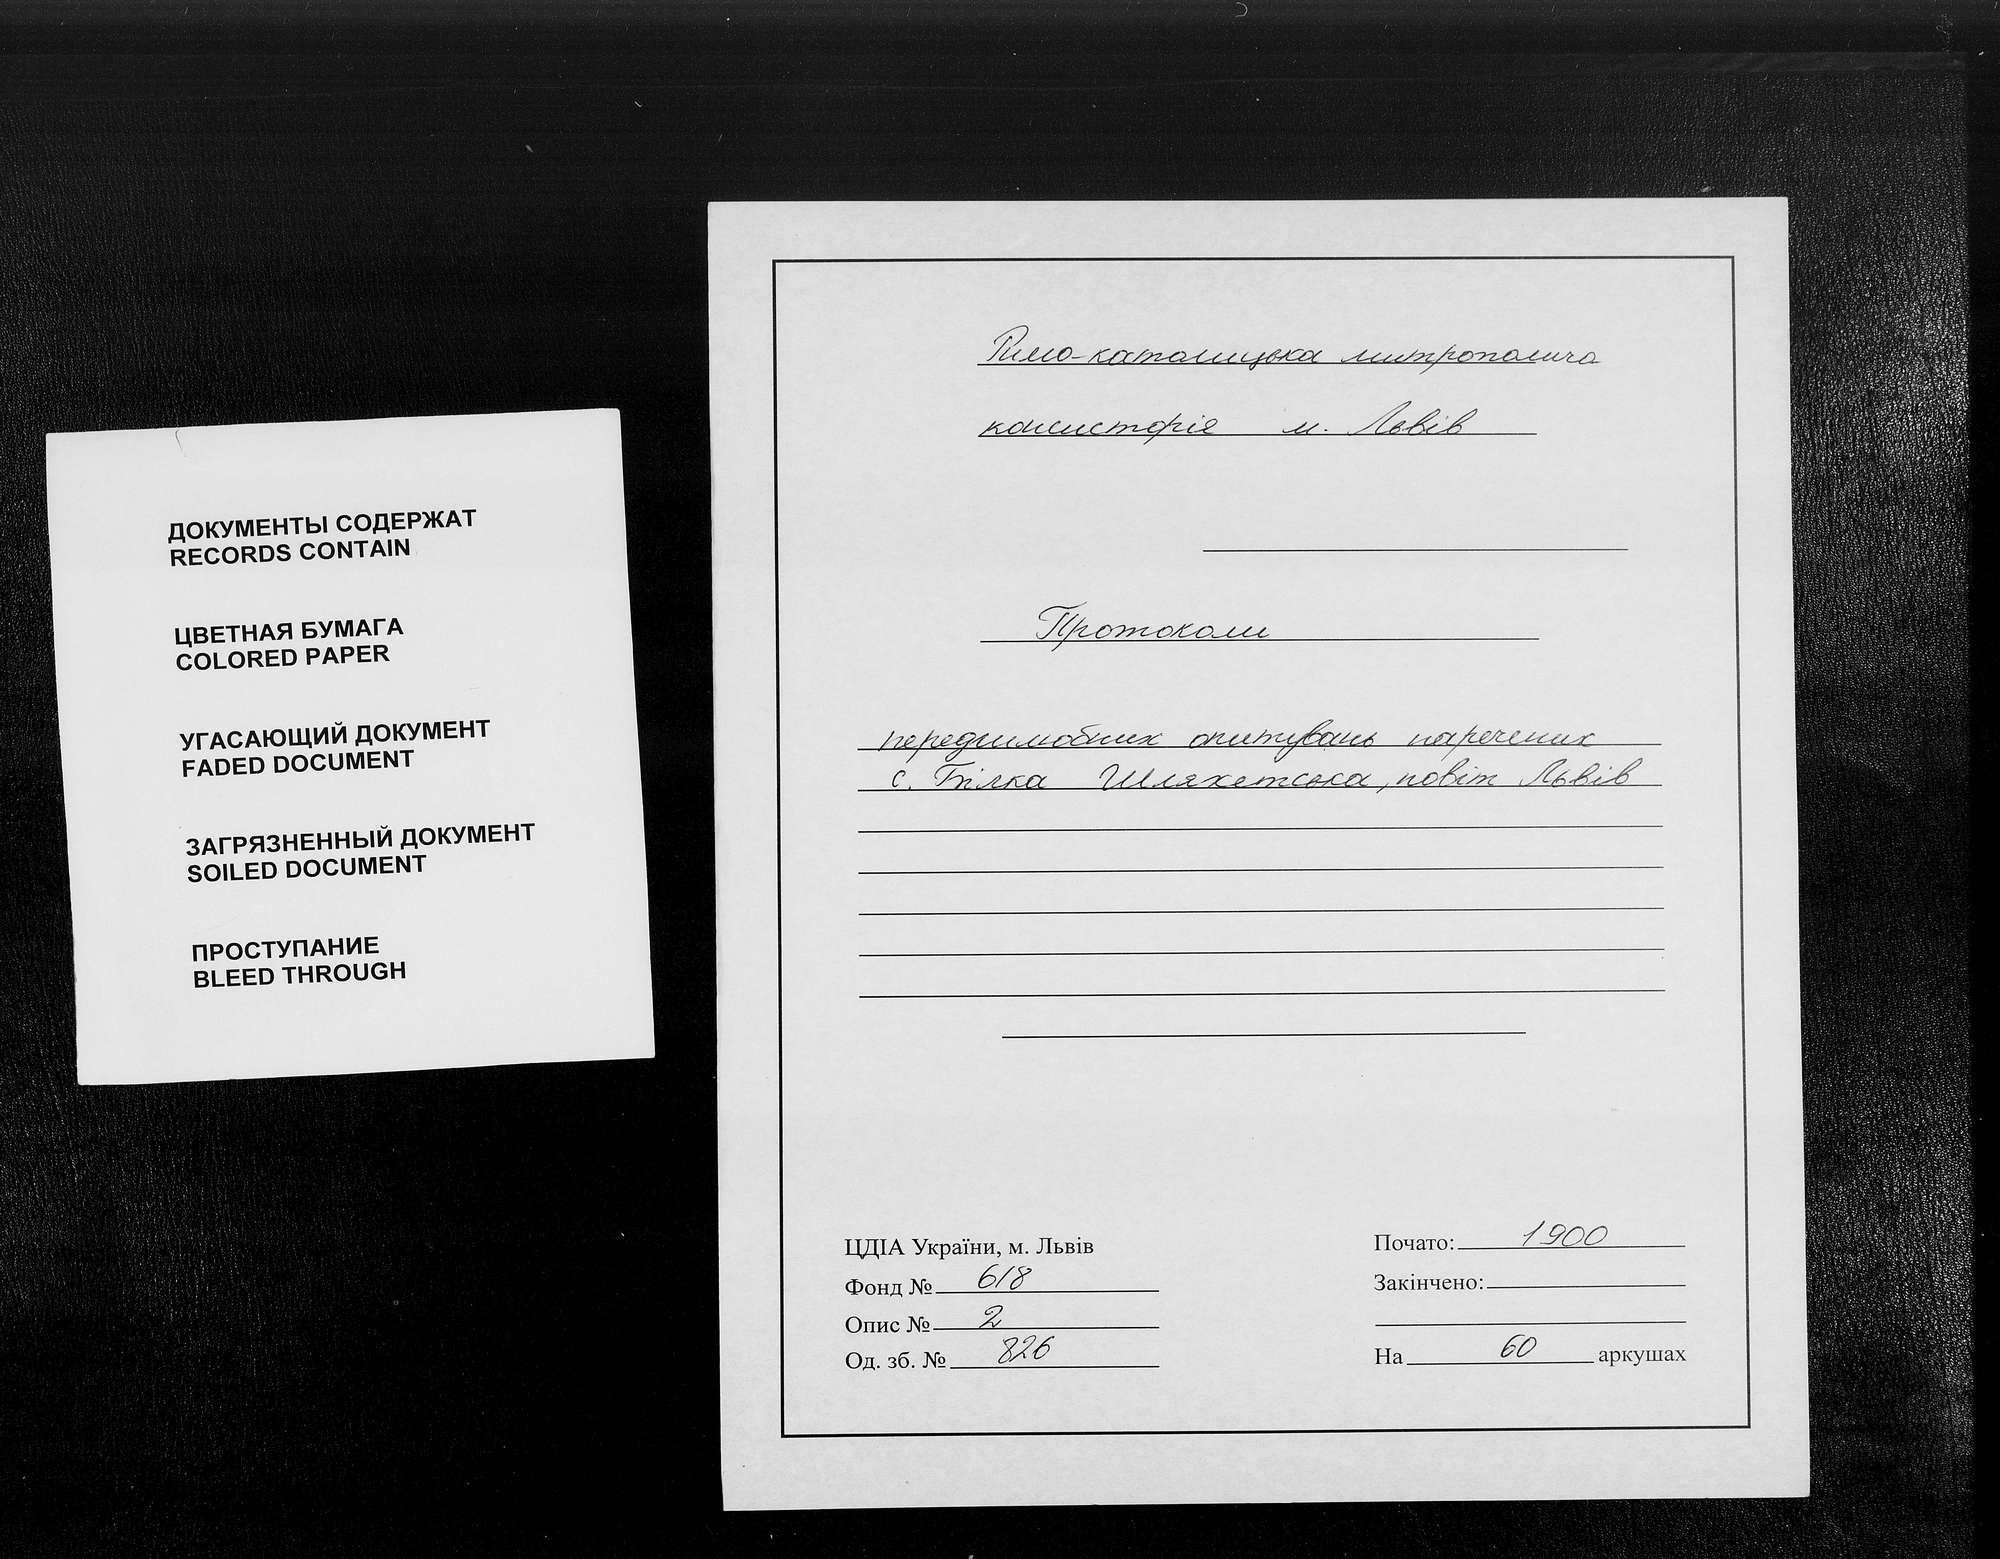 ДОКУМЕНТЫ СОДЕРЖАТ
RECORDS CONTAIN
ЦВЕТНАЯ БУМАГА
COLORED PAPER
УГАСАЮЩИЙ ДОКУМЕНТ
FADED DOCUMENT
ЗАГРЯЗНЕННЫЙ ДОКУМЕНТ
SOILED DOCUMENT
ПРОСТУПАНИЕ
BLEED THROUGH
Римо-католицька митрополича
консисторія м. Львів
Протоколи
передшлюбних опитувань наречених
с. Білка Шляхетська, повіт Львів
ЦДІА України, м. Львів
Фонд № 618
Опис № 2
Од. зб. № 826
Почато: 1900
Закінчено:
На 60 аркушах